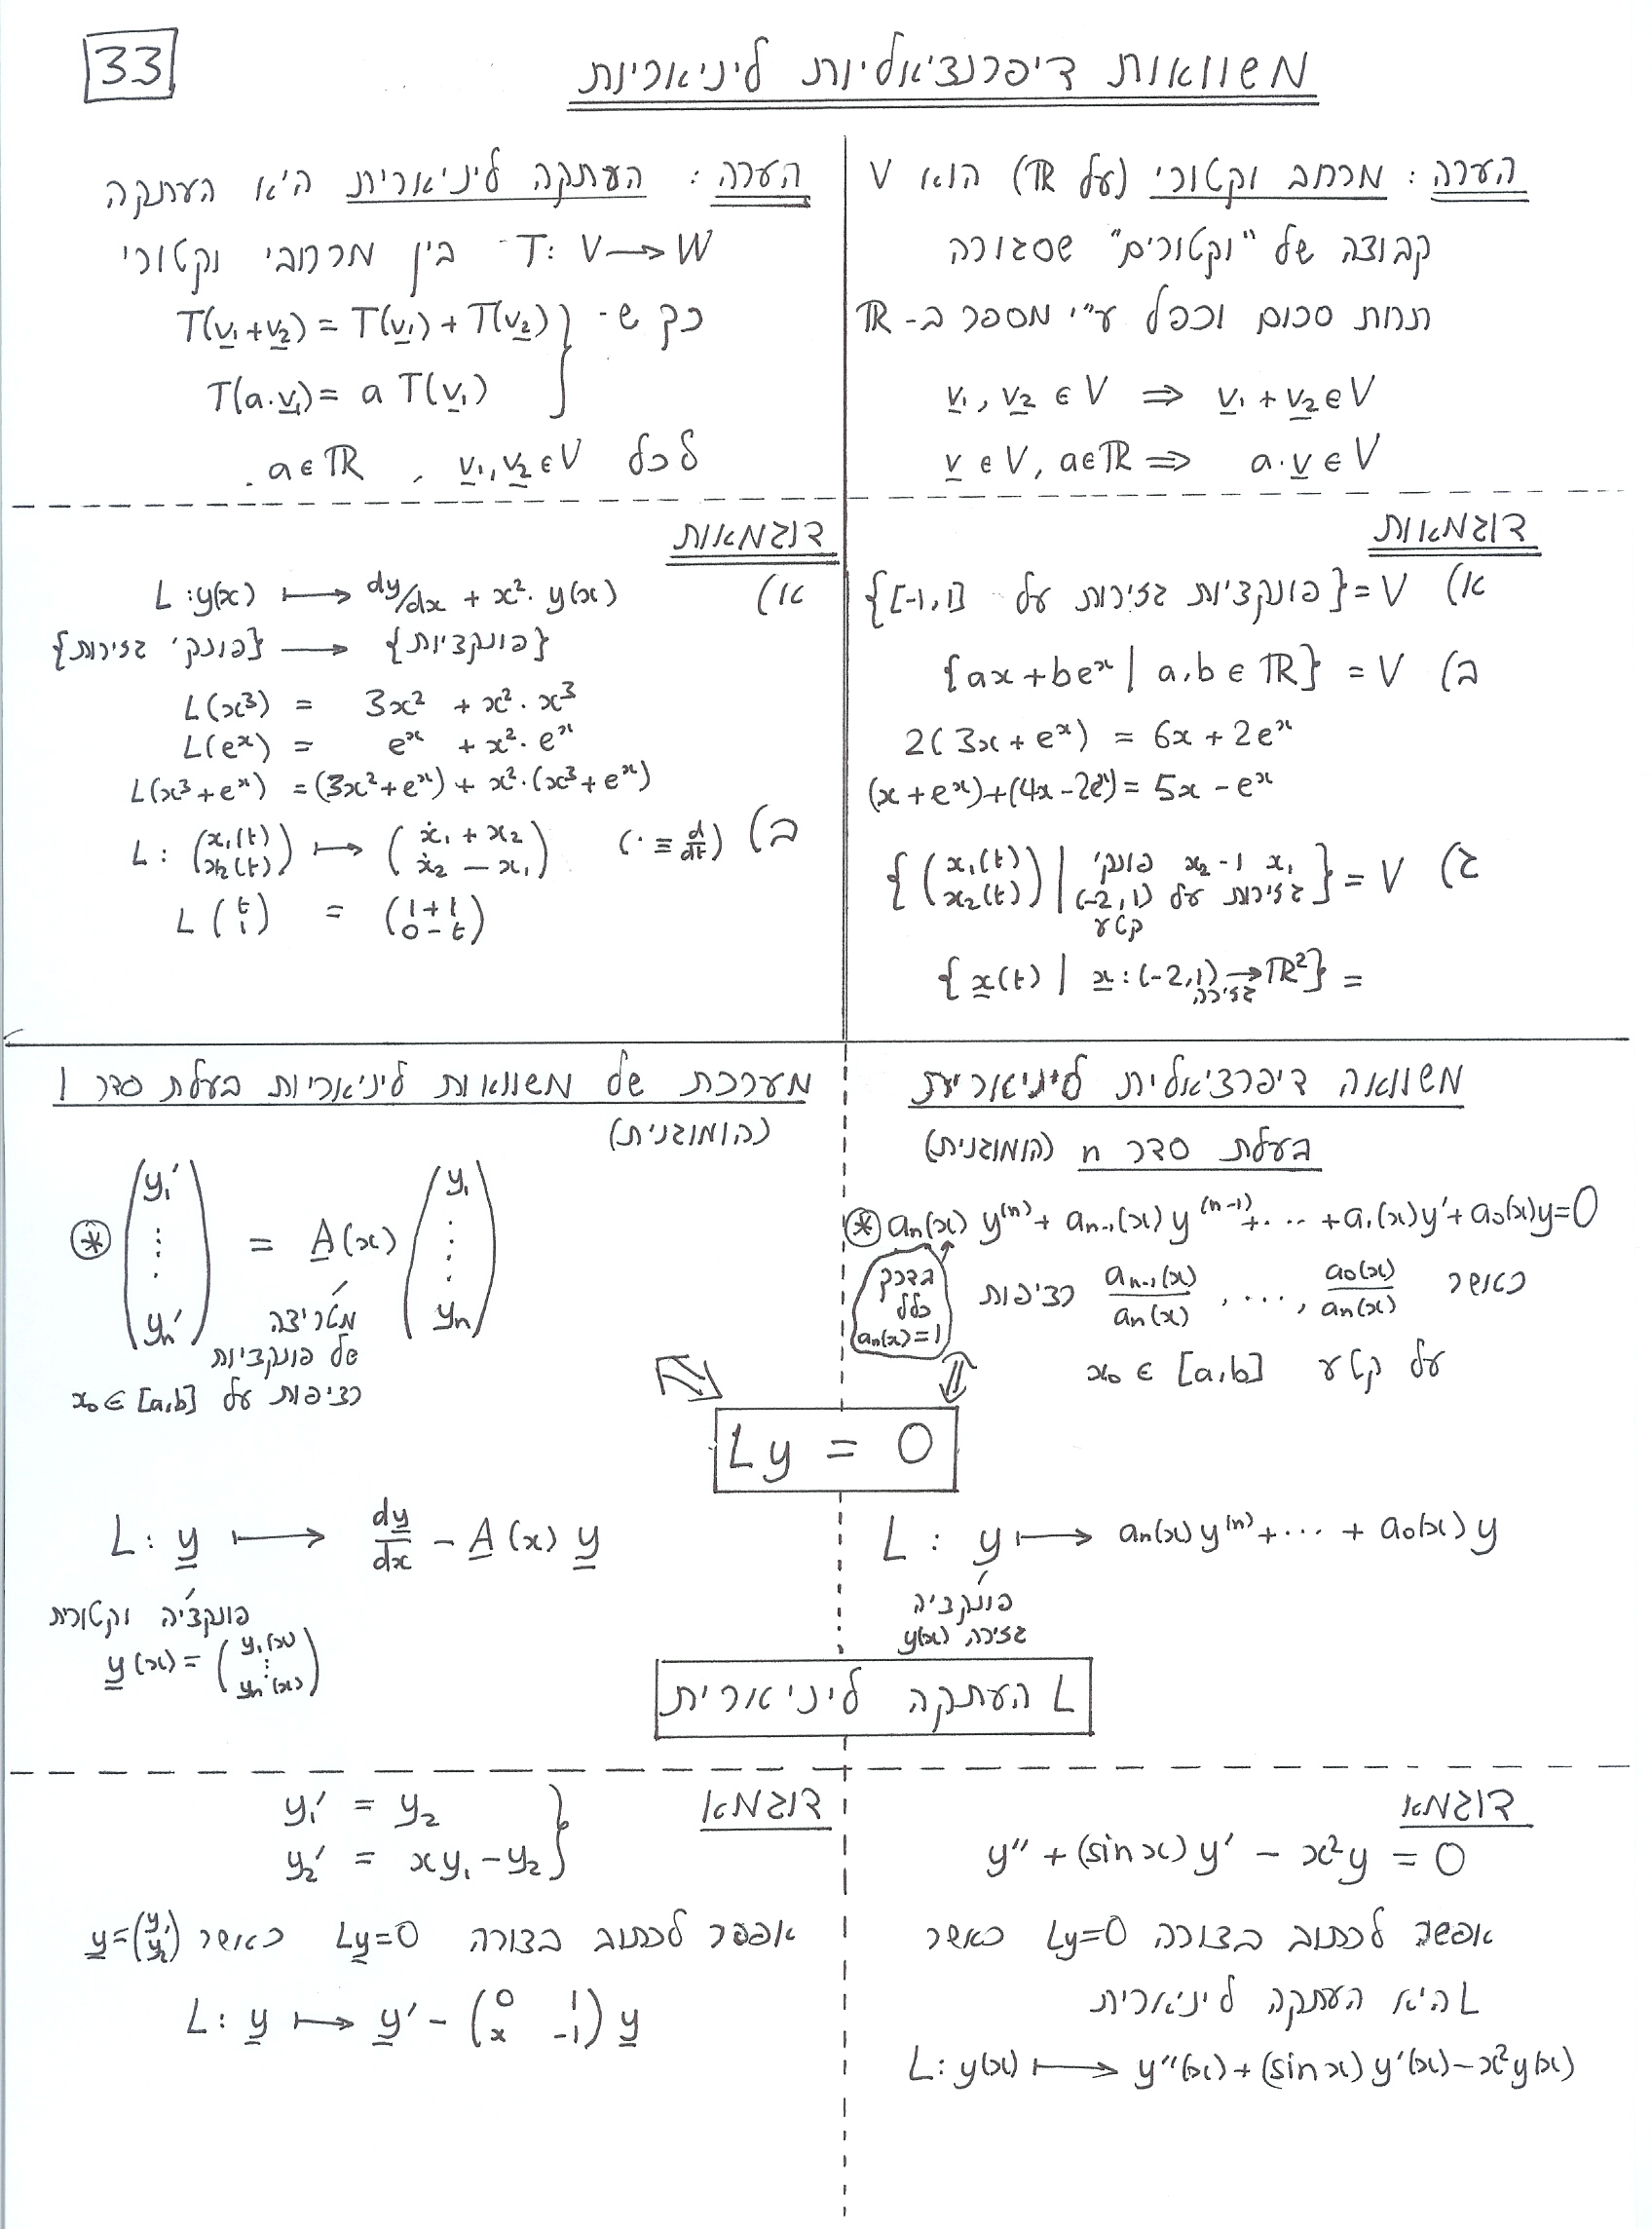 33
משוואות דיפרנציאליות ליניאריות
הערה: מרחב וקטורי (על ℝ) הוא V
קבוצה של "וקטורים" שסגורה
תחת סכום וכפל ע"י מספר ב-ℝ
v₁, v₂ ∈ V ⇒ v₁ + v₂ ∈ V
v ∈ V, a∈ℝ ⇒ a·v ∈ V
הערה: העתקה ליניארית היא העתקה
T: V → W בין מרחבי וקטורי
כך ש- T(v₁+v₂) = T(v₁) + T(v₂)
T(a·v₁) = a T(v₁) }
לכל v₁, v₂ ∈ V , a ∈ ℝ .
דוגמאות
א) V = {פונקציות גזירות על [-1,1]}
ב) V = {ax + beˣ | a,b ∈ ℝ}
2(3x + eˣ) = 6x + 2eˣ
(x + eˣ)+(4x-2eˣ) = 5x - eˣ
ג) V = { (x₁(t) x₂(t)) | x₁ ו-x₂ פונק' גזירות על (-2,1) קטע }
= { x(t) | x: (-2,1) → ℝ² } גזירה
דוגמאות
א) L: y(x) ⟼ dy/dx + x²·y(x)
{פונק' גזירות} → {פונקציות}
L(x³) = 3x² + x²·x³
L(eˣ) = eˣ + x²·eˣ
L(x³+eˣ) = (3x²+eˣ) + x²·(x³+eˣ)
ב) L: (x₁(t) x₂(t)) ⟼ (ẋ₁ + x₂ ẋ₂ - x₁) (· ≡ d/dt)
L (t 1) = (1+1 0-t)
משוואה דיפרציאלית ליניארית
בעלת סדר n (הומוגנית)
⊛ aₙ(x) y⁽ⁿ⁾ + aₙ₋₁(x) y⁽ⁿ⁻¹⁾ + ... + a₁(x)y' + a₀(x)y = 0
בדרך כלל aₙ(x)=1
כאשר a₀(x)/aₙ(x) , ..., aₙ₋₁(x)/aₙ(x) רציפות
על קטע x₀ ∈ [a,b]
מערכת של משוואות ליניאריות בעלת סדר 1
(הומוגנית)
⊛ (y₁' ⋮ yₙ') = A(x) (y₁ ⋮ yₙ)
מטריצה
של פונקציות
רציפות על x₀ ∈ [a,b]
Ly = 0
L: y ⟼ aₙ(x)y⁽ⁿ⁾ + ... + a₀(x)y
פונקציה
גזירה y(x)
L: y ⟼ dy/dx - A(x) y
פונקציה וקטורית
y(x) = (y₁(x) ⋮ yₙ(x))
L העתקה ליניארית
דוגמא
y'' + (sin x) y' - x²y = 0
אפשר לכתוב בצורה Ly=0 כאשר
L היא העתקה ליניארית
L: y(x) ⟼ y''(x) + (sin x) y'(x) - x²y(x)
דוגמא
y₁' = y₂
y₂' = xy₁ - y₂ }
אפשר לכתוב בצורה Ly=0 כאשר y=(y₁ y₂)
L: y ⟼ y' - (0 1 x -1) y